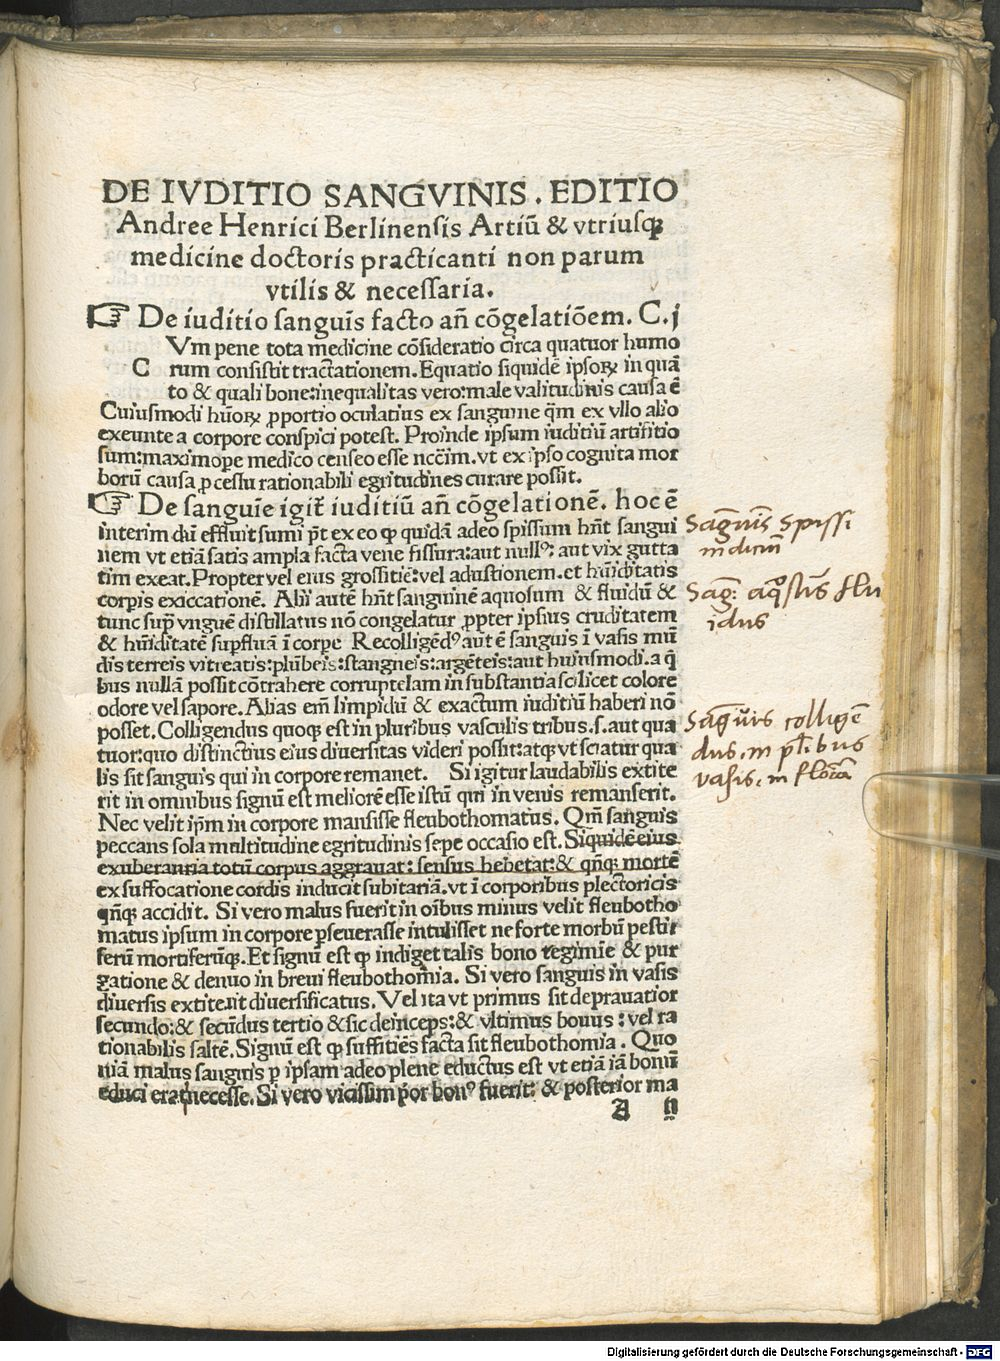 DE IVDITIO SANGVINIS. EDITIO
Andree Henrici Berlinensis Artiū & vtriusqꝫ
medicine doctoris practicanti non parum
vtilis & necessaria.
☞ De iuditio sanguīs facto añ cōgelatiōem. C.j
Vm pene tota medicine cōsideratio circa quatuor humo
C rum consistit tractationem. Equatio siquidē ipsoꝝ in quā
to & quali bone: inequalitas vero: male valitudinis causa ē
Cuiusmodi hūoꝝ ꝓportio oculatius ex sanguine q̄m ex vllo alio
exeunte a corpore conspici potest. Proinde ipsum iuditiū artifitio
sum: maximope medico censeo esse nccēm. vt ex ipso cognita mor
borū causa ꝓcessu rationabili egritudines curare possit.
☞ De sanguīe igit̄ iuditiū añ cōgelationē. hoc ē
interim dū effluit sumi p̄t ex eo ꝙ quidā adeo spissum hn̄t sangui
nem vt etiā satis ampla facta vene fissura: aut nullꝰ: aut vix gutta
tim exeat. Propter vel eius grossitiē: vel adustionem. et hūiditatis
corpis exiccationē. Alii autē hn̄t sanguinē aquosum & fluidū &
tunc sup̄ vnguē distillatus nō congelatur ꝓpter ipsius cruditatem
& hūiditatē supfluā ī corpe Recolligēdꝰ aut ē sanguis ī vasis mū
dis terreis vitreatis: plūbeis: stangneis: argēteis: aut huiusmodi. a q̄
bus nullā possit cōtrahere corruptelam in substantia scilicet colore
odore vel sapore. Alias em̄ limpidū & exactum iuditiū haberi nō
posset. Colligendus quoqꝫ est in pluribus vasculis tribus. s. aut qua
tuor: quo distinctius eius diuersitas videri possit: atqꝫ vt sciatur qua
lis sit sanguis qui in corpore remanet. Si igitur laudabilis extite
rit in omnibus signū est meliorē esse istū qui in venis remanserit.
Nec velit ip̄m in corpore mansisse fleubothomatus. Qm̄ sanguis
peccans sola multitudine egritudinis sepe occasio est. Siquidē eius
exuberantia totū corpus aggrauat: sensus hebetat: & qn̄qꝫ mortē
ex suffocatione cordis inducit subitariā. vt ī corporibus plectoricis
qn̄qꝫ accidit. Si vero malus fuerit in oībus minus velit fleubotho
matus ipsum in corpore ꝑseuerasse intulisset ne forte morbū pesti
ferū mortiferūqꝫ. Et signū est ꝙ indiget talis bono regimīe & pur
gatione & denuo in breui fleubothomīa. Si vero sanguis in vasis
diuersis extiterit diuersificatus. Vel ita vt primus sit deprauatior
secundo: & secūdus tertio & sic deinceps: & vltimus bonus: vel ra
tionabilis saltē. Signū est ꝙ suffitiēs facta sit fleubothomia. Quo
niā malus sanguis ꝑ ipsam adeo plene eductus est vt etiā iā bonū
educi erat necesse. Si vero vicissim p̄or bonꝰ fuerit: & posterior ma
A ij
Sāguīs spissi
indiciū
Sāg: aqōsus flu
idus
Sāguīs collige
dus. in pl̄ibus
vasis.
Digitalisierung gefördert durch die Deutsche Forschungsgemeinschaft - DFG